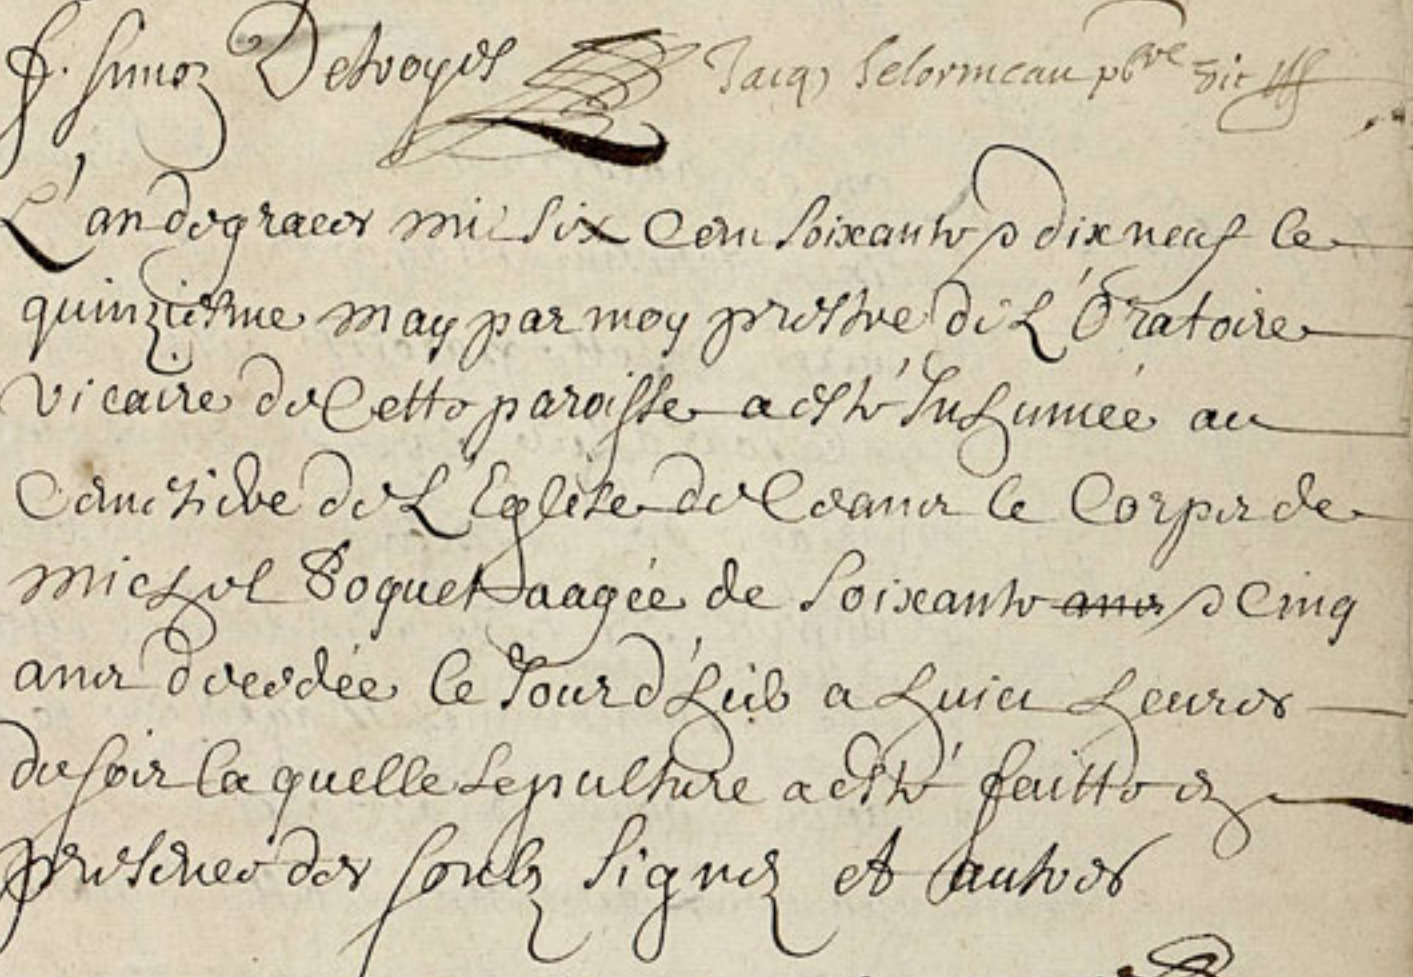 f. Simon Detroyes Jacq) Delormeau pbre vic
L'an de graces mil six Cent soixante & dix neuf le
quinziesme may par moy prestre de L'Oratoire
vicaire de Cette paroisse a esté Inhumée au
Cemetiere de L'Eglise de Ceans le Corps de
michel Poquet aagée de soixante ans & Cinq
ans decedée le Jour d'hier a huict heures
du soir la quelle sepulture a esté faitte en
presence des soubz signez et autres